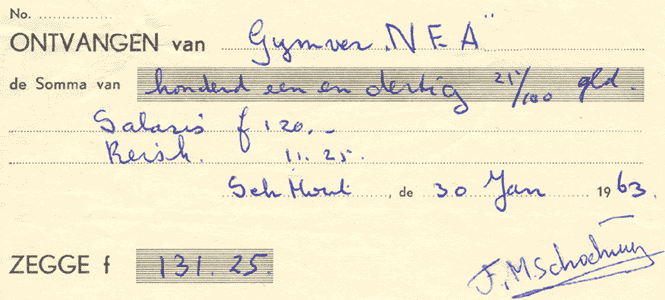 No. ................
ONTVANGEN van Gymver „NEA"
de Somma van honderd een en dertig 25/100 gld.
Salaris f 120.-
Reisk. 11.25.
Sch Hout, de 30 Jan 1963.
ZEGGE f 131.25.
F.M.